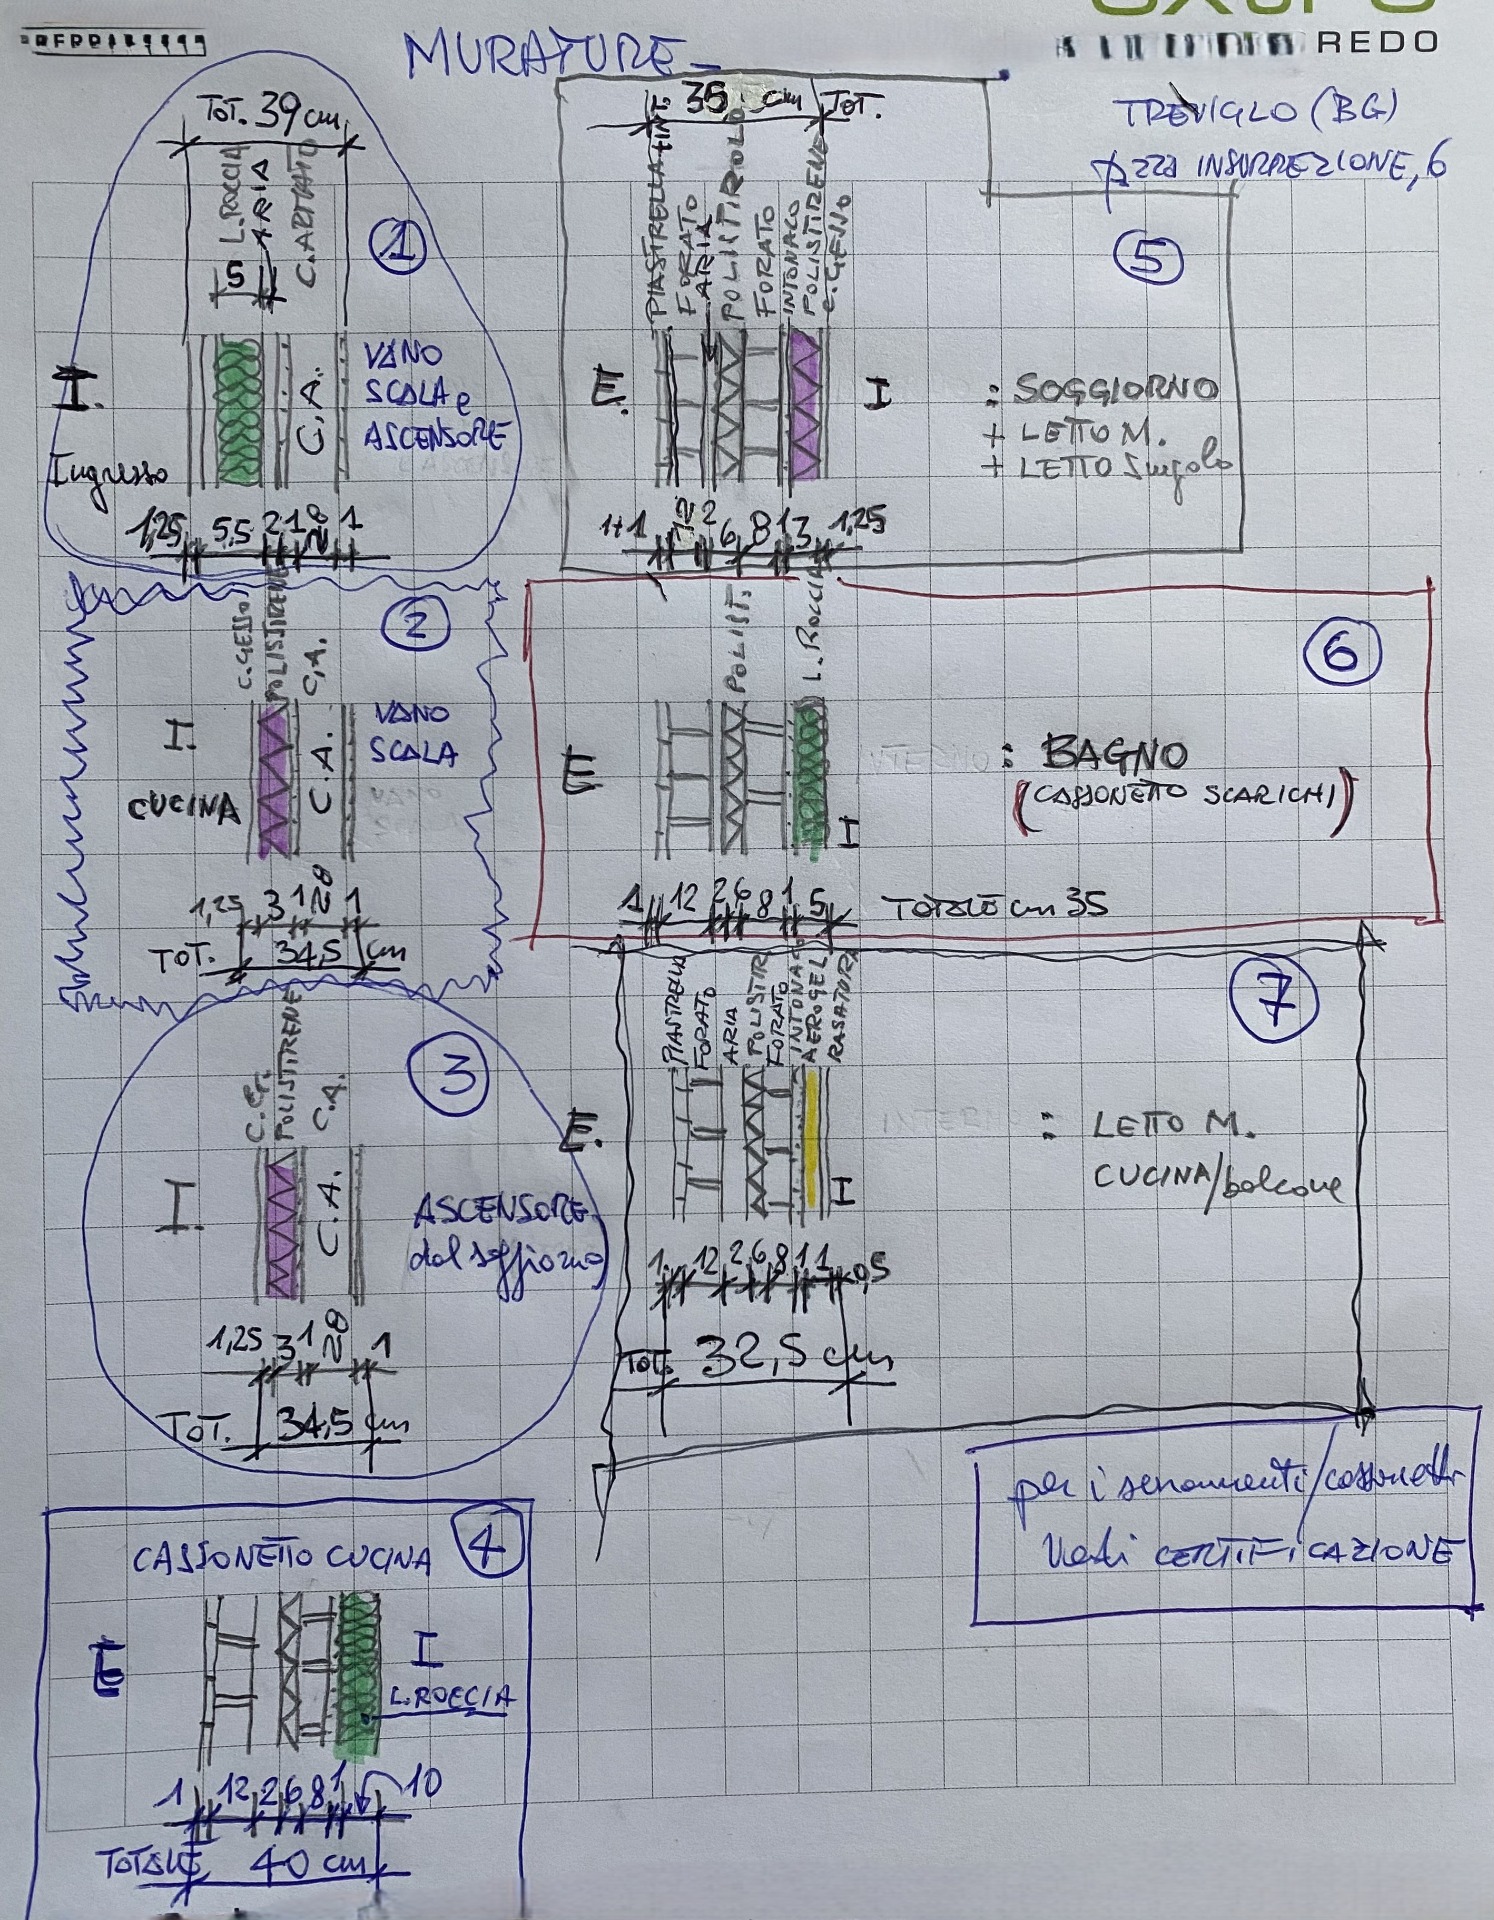 REDO
MURATURE
TREVIGLO (BG)
pzza INSURREZIONE, 6
TOT. 39 cm
L. ROCCIA
ARIA
C. ARMATO
5
1
I.
Ingresso
C.A.
VANO
SCALA e
ASCENSORE
1,25 5,5 2 1 28 1
C. GESSO
POLISTIRENE
C.A.
2
I.
CUCINA
C.A.
VANO
SCALA
1,25 3 1 28 1
TOT. 34,5 cm
POLISTIRENE
C.A.
3
I.
C.A.
ASCENSORE
dal soggiorno
1,25 3 1 28 1
TOT. 34,5 cm
4
CASSONETTO CUCINA
E
I
L. ROCCIA
1 12 2 6 8 1 10
TOTALE 40 cm
35 cm TOT.
PIASTRELLA+INT
FORATO
ARIA
POLISTIROLO
FORATO
INTONACO
POLISTIRENE
C. GESSO
5
E.
I
: SOGGIORNO
+ LETTO M.
+ LETTO Singolo
1+1 12 2 6 8 1 3 1,25
POLIST.
L. ROCCIA
6
E
I
: BAGNO
(CASSONETTO SCARICHI)
1 12 2 6 8 1 5 TOTALE cm 35
PIASTRELLA
FORATO
ARIA
POLISTIR
FORATO
INTONACO
AEROGEL
RASATURA
7
E.
I
: LETTO M.
CUCINA/balcone
1 12 2 6 8 1 1 0,5
TOT. 32,5 cm
per i serramenti/cassonetti
vedi CERTIFICAZIONE